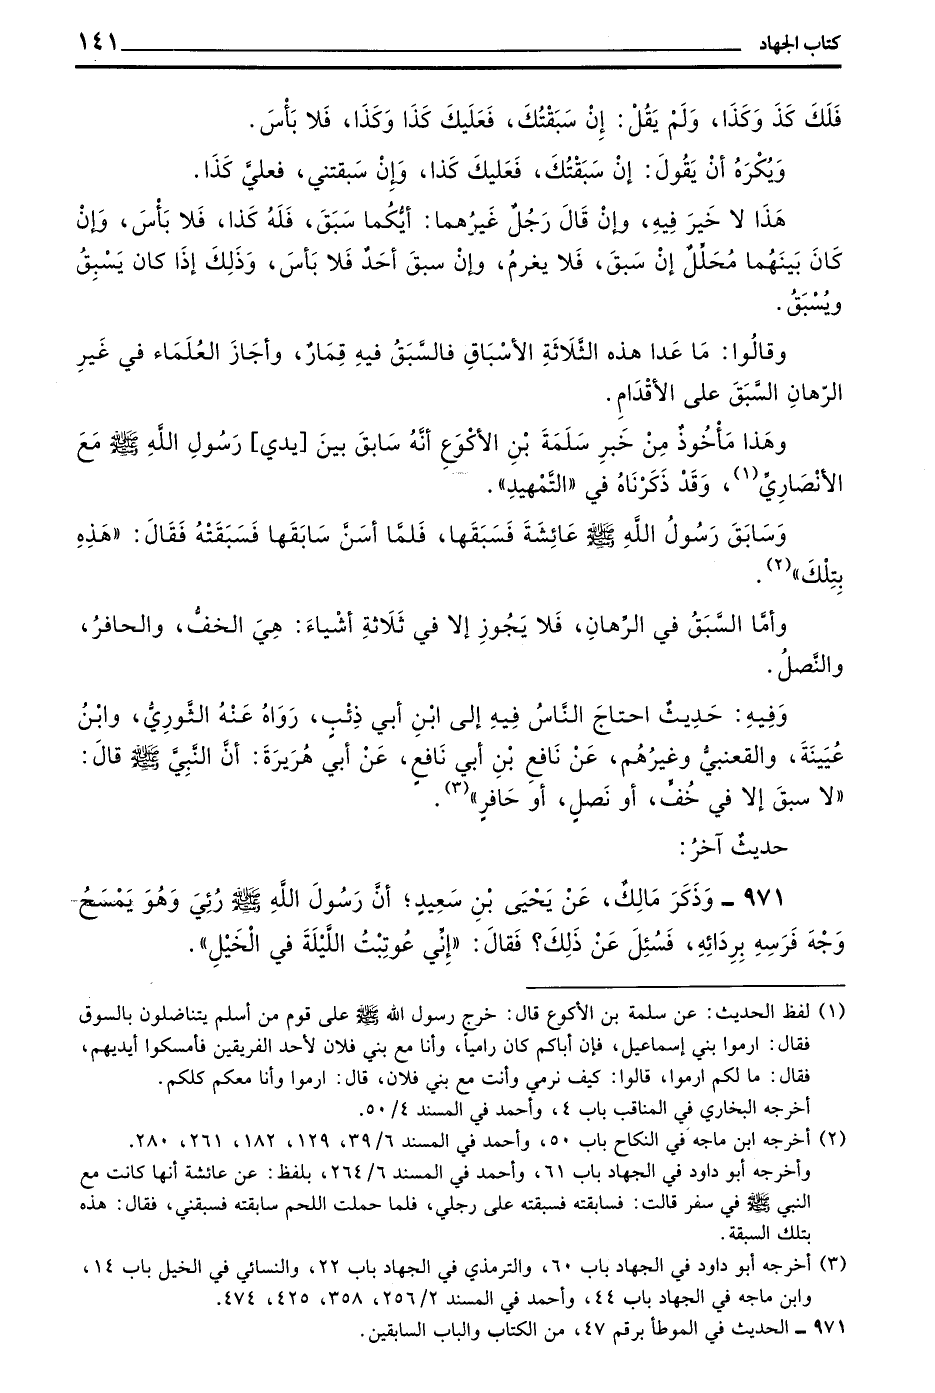 كتاب الجهاد ١٤١
فَلَكَ كَذَ وَكَذَا، وَلَمْ يَقُلْ: إِنْ سَبَقْتُكَ، فَعَلَيكَ كَذَا وَكَذَا، فَلا بَأْسَ.
وَيُكْرَهُ أنْ يَقُولَ: إنْ سَبَقْتُكَ، فَعَليكَ كَذا، وَإِنْ سَبقتني، فعليَّ كَذَا.
هَذَا لا خَيرَ فِيهِ، وإنْ قَالَ رَجُلٌ غَيرُهما: أيُّكُما سَبَقَ، فَلَهُ كَذا، فَلا بَأْسَ، وَإنْ
كَانَ بَينَهُما مُحَلِّلٌ إنْ سَبقَ، فَلا يغرمُ، وإنْ سبقَ أحَدٌ فَلا بَأسَ، وَذَلِكَ إذَا كان يَسْبِقُ
ويُسْبَقُ.
وقالُوا: مَا عَدا هذه الثَّلَاثَةِ الأسْبَاقِ فالسَّبَقُ فيهِ قِمَارٌ، وأجَازَ العُلَمَاء في غَيرِ
الرّهانِ السَّبَقَ على الأقْدَامِ.
وهَذا مَأْخُوذٌ مِنْ خَبرِ سَلَمَةَ بْنِ الأكْوَعِ أنَّهُ سَابقَ بينَ [يدي] رَسُولِ اللَّهِ ﷺ مَعَ
الأنْصَاريِّ(١)، وَقَدْ ذَكَرْنَاهُ في «التَّمْهِيدِ».
وَسَابَقَ رَسُولُ اللَّهِ ﷺ عَائِشَةَ فَسَبَقَها، فَلمَّا أسَنَّ سَابَقَها فَسَبَقَتْهُ فَقَالَ: «هَذِهِ
بِتِلْكَ»(٢).
وأمَّا السَّبَقُ في الرّهانِ، فَلا يَجُوزِ إلا في ثَلَاثةِ أشْياءَ: هِيَ الخفُّ، والحافرُ،
والنَّصلُ.
وَفِيهِ: حَدِيثٌ احتاجَ النَّاسُ فِيهِ إلى ابْنِ أبي ذِئْبٍ، رَوَاهُ عَنْهُ الثَّوريُّ، وابْنُ
عُيَينَةَ، والقعنبيُّ وغيرُهُم، عَنْ نَافعِ بْنِ أبي نَافعٍ، عَنْ أبي هُرَيرَةَ: أنَّ النَّبِيَّ ﷺ قالَ:
«لا سبقَ إلا في خُفٍّ، أو نَصلٍ، أو حَافرٍ»(٣).
حديثٌ آخرُ:
٩٧١ ـ وَذَكَرَ مَالِكٌ، عَنْ يَحْيَى بْنِ سَعِيدٍ؛ أنَّ رَسُولَ اللَّهِ ﷺ رُئِيَ وَهُوَ يَمْسَحُ
وَجْهَ فَرَسِهِ بِرِدَائِهِ، فَسُئِلَ عَنْ ذَلِكَ؟ فَقالَ: «إنِّي عُوتِبْتُ اللَّيلَةَ في الْخَيْلِ».
(١) لفظ الحديث: عن سلمة بن الأكوع قال: خرج رسول الله ﷺ على قوم من أسلم يتناضلون بالسوق
فقال: ارموا بني إسماعيل، فإن أباكم كان رامياً، وأنا مع بني فلان لأحد الفريقين فأمسكوا أيديهم،
فقال: ما لكم ارموا، قالوا: كيف نرمي وأنت مع بني فلان، قال: ارموا وأنا معكم كلكم.
أخرجه البخاري في المناقب باب ٤، وأحمد في المسند ٤/ ٥٠.
(٢) أخرجه ابن ماجه في النكاح باب ٥٠، وأحمد في المسند ٦/ ٣٩، ١٢٩، ١٨٢، ٢٦١، ٢٨٠.
وأخرجه أبو داود في الجهاد باب ٦١، وأحمد في المسند ٦/ ٢٦٤، بلفظ: عن عائشة أنها كانت مع
النبي ﷺ في سفر قالت: فسابقته فسبقته على رجلي، فلما حملت اللحم سابقته فسبقني، فقال: هذه
بتلك السبقة.
(٣) أخرجه أبو داود في الجهاد باب ٦٠، والترمذي في الجهاد باب ٢٢، والنسائي في الخيل باب ١٤،
وابن ماجه في الجهاد باب ٤٤، وأحمد في المسند ٢/ ٢٥٦، ٣٥٨، ٤٢٥، ٤٧٤.
٩٧١ ـ الحديث في الموطأ برقم ٤٧، من الكتاب والباب السابقين.